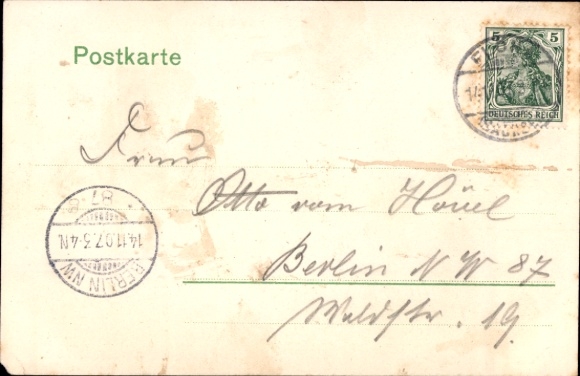 Postkarte
5 5
DEUTSCHES REICH
Frau
Otto vom Hövel
Berlin N W 87
Waldstr. 19.
* 87 *
14.11.07.3-4N.
BERLIN NW